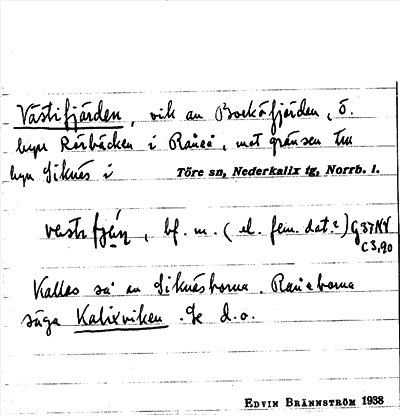 Västifjärden, vik av Bocköfjärden, ö.
byn Rörbäcken i Råneå, mot gränsen till
byn Siknäs i Töre sn, Nederkalix tg, Norrb. l.
västifjáṇ, bf. m. (el. fem. dat?) G37NV
C3,90
Kallas så av Siknäsborna. Råneåborna
säga Kalixviken. Se d.o.
EDVIN BRÄNNSTRÖM 1938